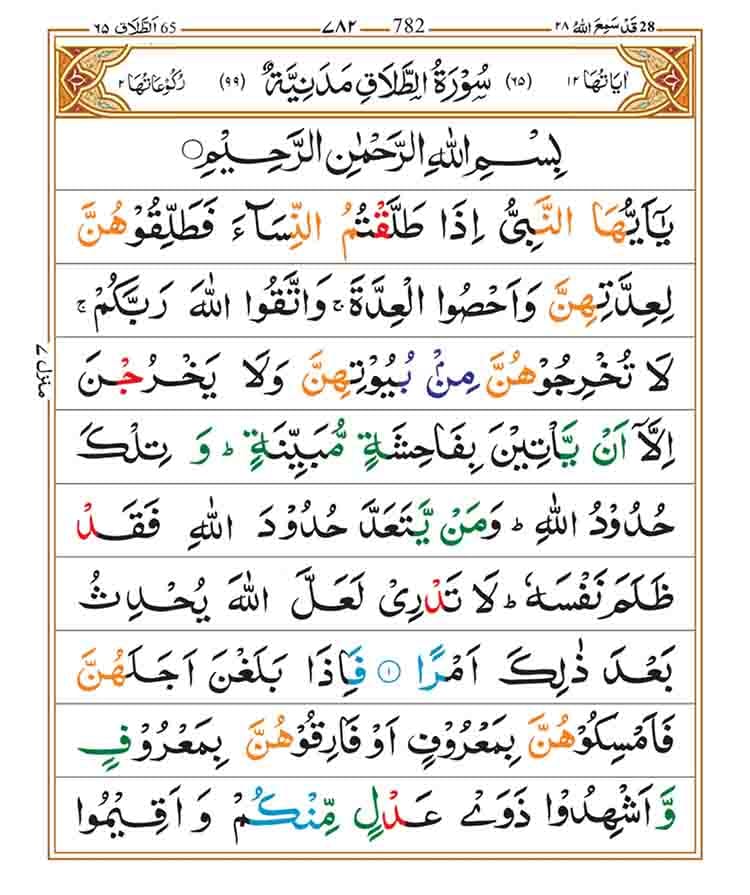 28 قَدْ سَمِعَ اللهُ ٢٨ 782 ٧٨٢ 65 اَلطَّلَاق ٦٥
اٰیَاتُهَا ١٢ (٦٥) سُوْرَةُ الطَّلَاقِ مَدَنِیَّةٌ (٩٩) رُكُوْعَاتُهَا ٢
بِسْمِ اللهِ الرَّحْمٰنِ الرَّحِیْمِ ○
یٰۤاَیُّهَا النَّبِیُّ اِذَا طَلَّقْتُمُ النِّسَآءَ فَطَلِّقُوْهُنَّ
لِعِدَّتِهِنَّ وَاَحْصُوا الْعِدَّةَ ۚ وَاتَّقُوا اللهَ رَبَّكُمْ ۚ
لَا تُخْرِجُوْهُنَّ مِنْۢ بُیُوْتِهِنَّ وَلَا یَخْرُجْنَ
اِلَّاۤ اَنْ یَّاْتِیْنَ بِفَاحِشَةٍ مُّبَیِّنَةٍ ؕ وَ تِلْكَ
حُدُوْدُ اللهِ ؕ وَمَنْ یَّتَعَدَّ حُدُوْدَ اللهِ فَقَدْ
ظَلَمَ نَفْسَهٗ ؕ لَا تَدْرِیْ لَعَلَّ اللهَ یُحْدِثُ
بَعْدَ ذٰلِكَ اَمْرًا ۝١ فَاِذَا بَلَغْنَ اَجَلَهُنَّ
فَاَمْسِكُوْهُنَّ بِمَعْرُوْفٍ اَوْ فَارِقُوْهُنَّ بِمَعْرُوْفٍ
وَّ اَشْهِدُوْا ذَوَیْ عَدْلٍ مِّنْكُمْ وَ اَقِیْمُوا
منزل ٧